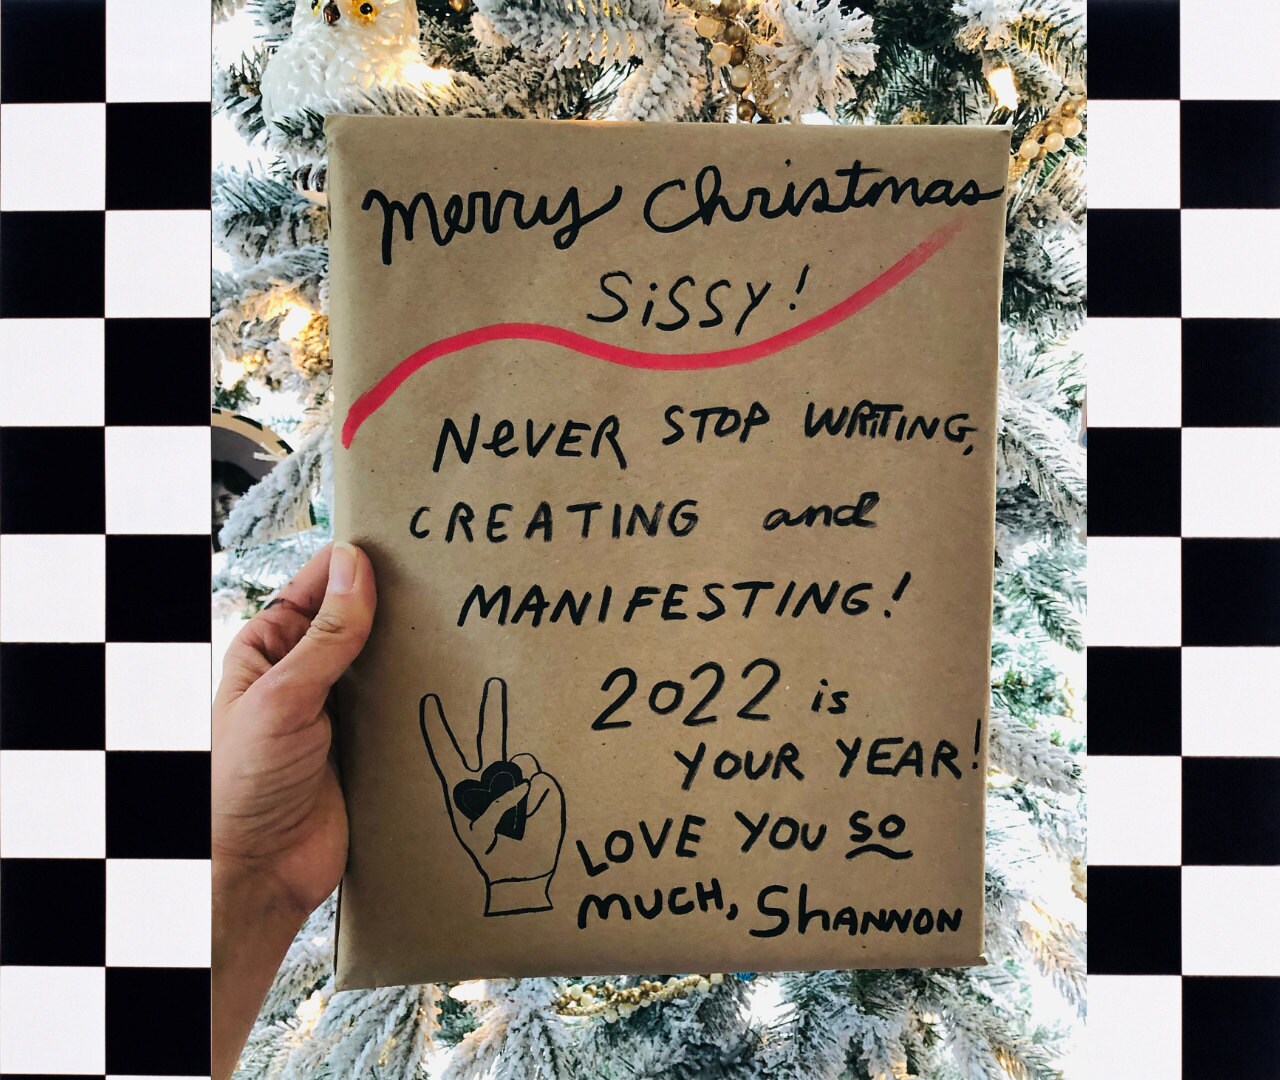 Merry Christmas
SiSSY!
NeVER STOP WRITING,
CREATING and
MANIFESTING!
2022 is
YOUR YEAR!
LOVE YOU so
MUCH, ShANNON